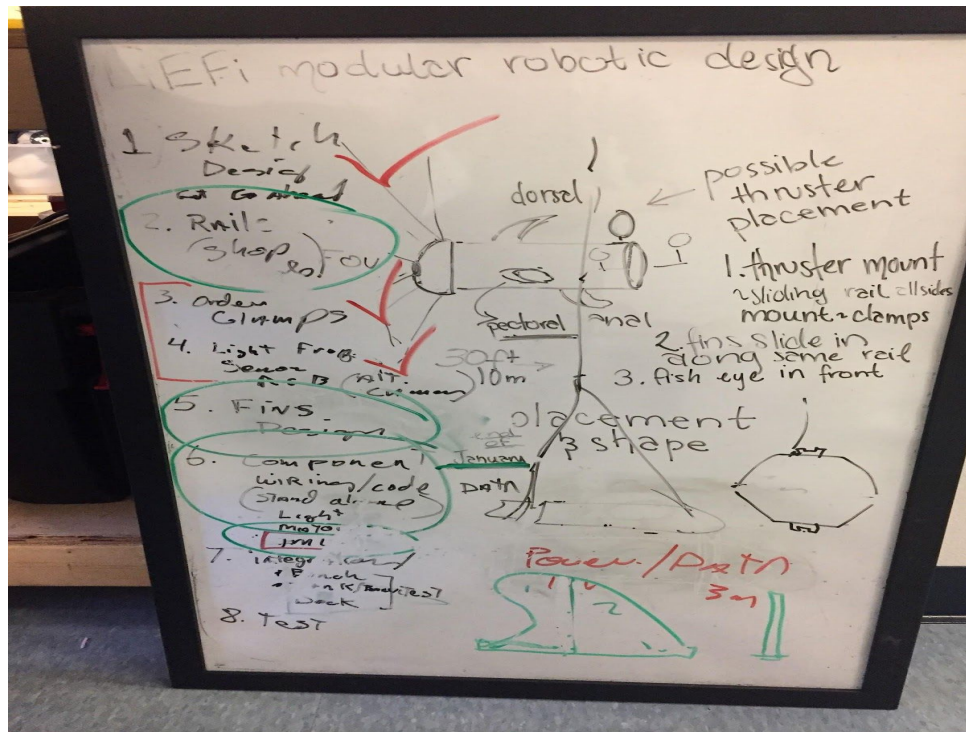 EFi modular robotic design
1 Sketch
Design
Go Ahead
2. Rail
(shop
3. order
Clamps
4. Light Freq.
Sensor
5. Fins
Designs
6. Component
wiring/code
(stand alone
Light
7.
Week
8. Test
dorsel
pectorel
anal
30ft
10m
possible
thruster
placement
1. thruster mount
~sliding rail all sides
mount~clamps
2. fins slide in
along same rail
3. fish eye in front
placement
& shape
January
DATA
Power/Data
3m
1
2